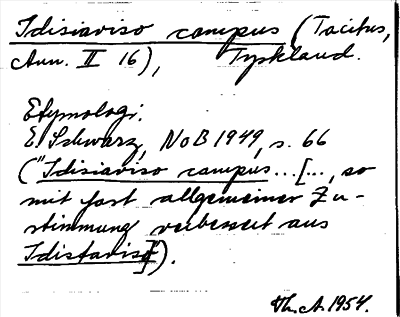 Idisiaviso campus (Tacitus,
Ann. II 16), Tyskland.
Etymologi.
E Schwarz, NoB 1949, s. 66
("Idisiaviso campus...[..., so
mit fast allgemeiner Zu-
stimmung verbessert aus
Idistaviso]").
Th. A. 1954.